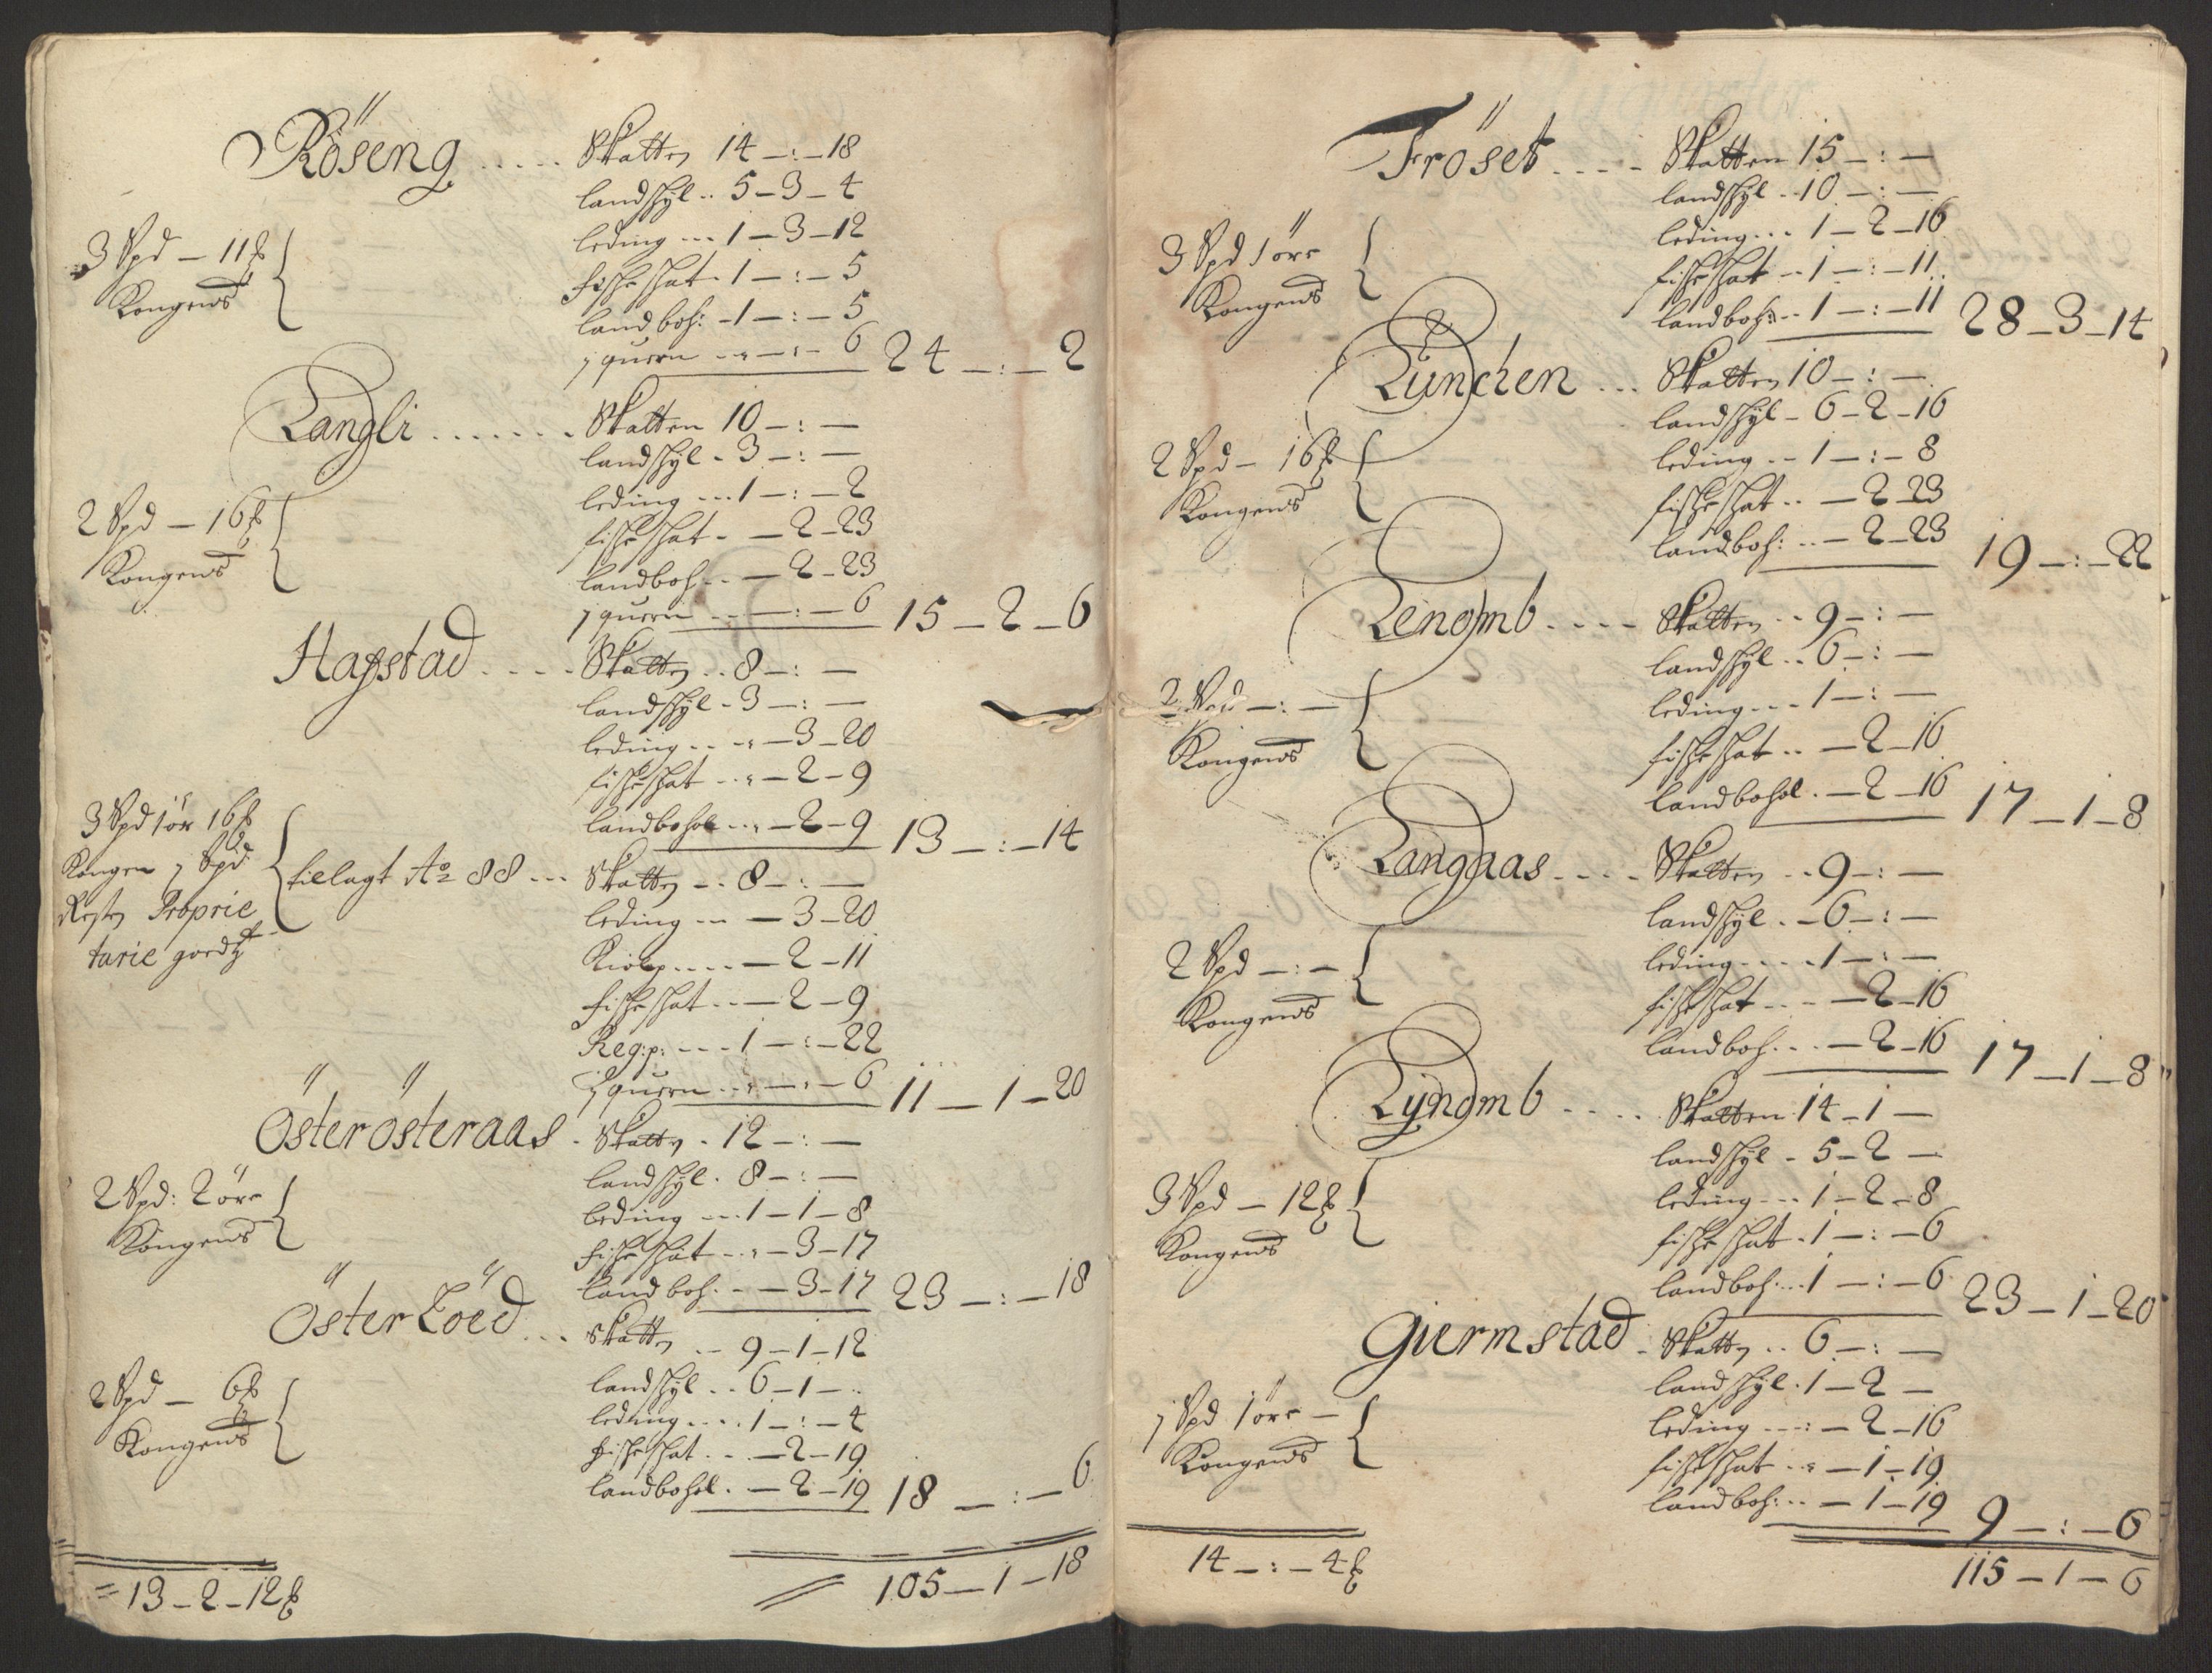 Röseng ..... Skatten 14 –:– 18
landskÿl .. 5 – 3 – 4
leding ... 1 – 3 – 12
3 Spd – 11 ℔
fiskeskat . 1 –:– 5
Kongens
landboh: - 1 –:– 5
1 quern .. – : – 6 24 –:– 2
Langli ....... Skatten 10 –:–
landskÿl . 3 –:–
leding ... 1 –:– 2
2 Spd – 16 ℔
fiskeskat . – 2 – 23
Kongens
landboh .. – 2 – 23
1 quern .. –:– 6 15 – 2 – 6
Hagstad .... Skatten .. 8 –:–
landskÿl - 3 –:–
leding .. – 3 – 20
fiskeskat .. – 2 – 9
3 Spd 1 ör 16 ℔
landbohol ... – 2 – 9 13 –:– 14
Kongen 1 Spd:
tillagt Ao 88 ... Skatten .. 8 –:–
Resten Proprie
leding ... – 3 – 20
tarie goedtz
.... – 2 – 11
fiskeskat .. – 2 – 9
Reg:p: .... 1 –:– 22
1 quern .. –:– 6 11 – 1 – 20
Österösteraas . Skatten . 12 –:–
landskÿl . 8 –:–
2 Spd: 2 öre
leding ... 1 – 1 – 8
Kongens
fiskeskat .. – 3 – 17
landboh . – 3 – 17 23 –:– 18
Öster Löed ... skatten .. 9 – 1 – 12
landskÿl .. 6 – 1 –
2 Spd – 6 ℔
leding .... 1 –:– 4
Kongens
fiskeskat ... – 2 – 19
landbohol . – 2 – 19 18 –:– 6
= 13 – 2 – 12 ℔
105 – 1 – 18
Fröset .... Skatten 15 –:–
landskÿl .. 10 –:–
leding ... 1 – 2 – 16
3 Spd 1 öre
fiskeskat .. 1 –:– 11
Kongens
landboh: .. 1 –:– 11 28 – 3 – 14
Lünchen ... Skatten 10 –:–
landskÿl - 6 – 2 – 16
2 Spd – 16 ℔
leding .. 1 –:– 8
Kongens
fiskeskat .. – 2 23
landboh: .. – 2 – 23 19 –:– 22
Lengmb .... Skatten .. 9 –:–
landskÿl .. 6 –:–
2 Spd –:–
leding ... 1 –:–
Kongens
fiskeskat .. – 2 – 16
landbohol . – 2 – 16 17 – 1 – 8
Langaas .... Skatten .. 9 –:–
landskÿl .. 6 –:–
2 Spd –:–
leding .... 1 –:–
Kongens
fiskeskat ... – 2 – 16
landboh ... – 2 – 16 17 – 1 – 8
Lyngmb .... Skatten 14 – 1 –
landskÿl . 5 – 2 –
3 Spd – 12 ℔
leding ... 1 – 2 – 8
Kongens
fiskeskat . 1 –:– 6
landboh .... 1 –:– 6 23 – 1 – 20
Giermstad . Skatten .. 6 –:–
landskÿl . 1 – 2 –
1 Spd 1 öre –
leding ... : – 2 – 16
Kongens
fiskeskat .. – 1 – 19
landboh: .. – 1 – 19 9 –:– 6
14 –:– 4 ℔
115 – 1 – 6